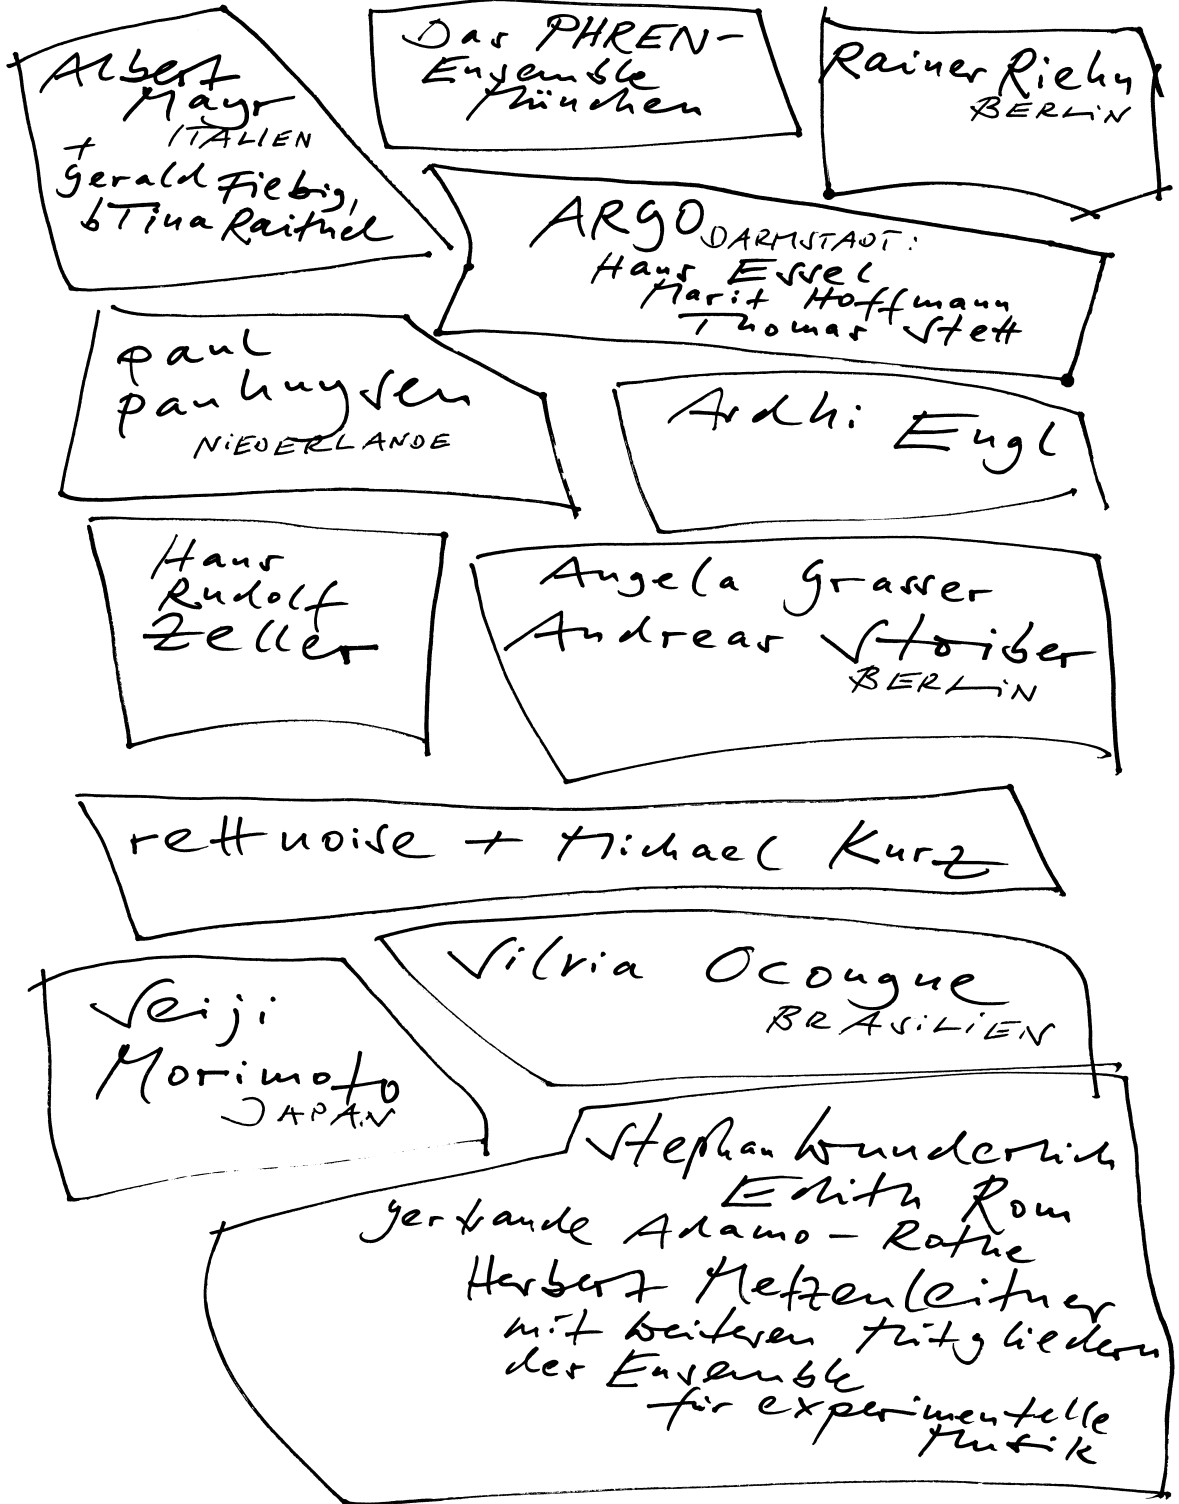 Albert
Mayr
ITALIEN
+
Gerald Fiebig,
bTina Raithel
Das PHREN-
Ensemble
München
Rainer Riehn
BERLIN
ARGO DARMSTADT:
Hans Essel
Marit Hoffmann
Thomas Stett
paul
panhuysen
NIEDERLANDE
Ardhi Engl
Hans
Rudolf
Zeller
Angela Grasser
Andreas Stoiber
BERLIN
rettnoise + Michael Kurz
Silvia Ocougne
BRASILIEN
Seiji
Morimoto
JAPAN
Stephan Wunderlich
Edith Rom
Gertraude Adamo-Rothe
Herbert Metzenleitner
mit weiteren Mitgliedern
des Ensemble
für experimentelle
Musik